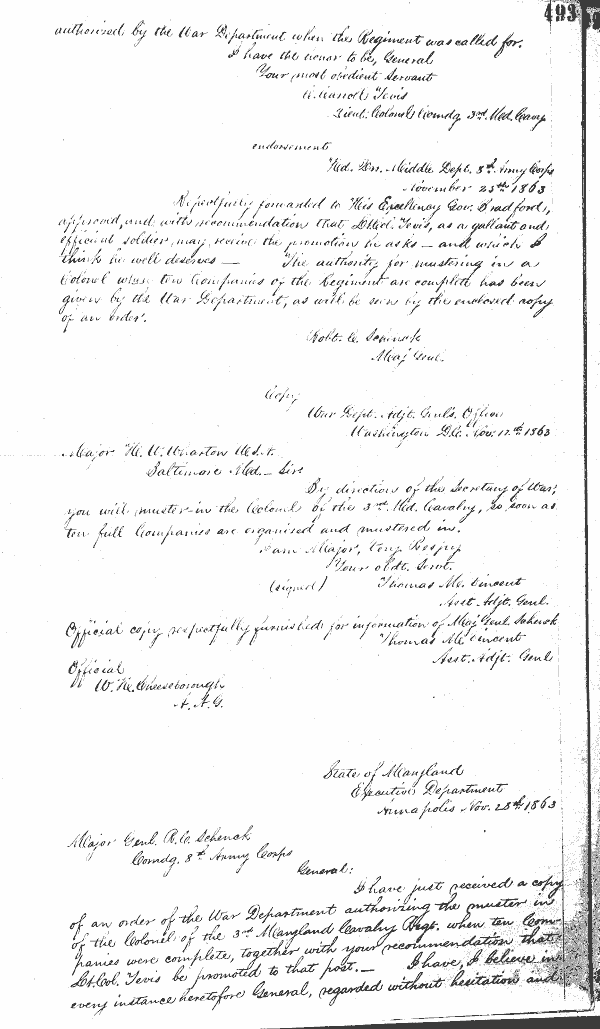 493
authorized by the War Department when the Regiment was called for.
I have the honor to be, General
Your most obedient Servant
C. Carroll Tevis
Lieut. Colonel Comdg 3rd Md. Cavy
endorsement
Hd. Qrs. Middle Dept. 8th Army Corps
November 25th 1863
Respectfully forwarded to His Excellency Gov. Bradford,
approved, and with recommendation that Lt Col. Tevis, as a gallant and
efficient soldier, may receive the promotion he asks — and which I
think he well deserves — The authority for mustering in a
Colonel when ten Companies of the Regiment are complete has been
given by the War Department, as will be seen by the enclosed copy
of an order.
Robt. C. Schenck
Maj Genl.
Copy
War Dept. Adjt. Genl's. Office
Washington D.C. Nov. 12th 1863
Major H. W. Wharton U.S.A.
Baltimore Md — Sir
By direction of the Secretary of War,
you will muster-in the Colonel of the 3rd Md. Cavalry, so soon as
ten full Companies are organized and mustered in.
I am Major, Very Respy
Your obdt. Servt.
(signed) Thomas M. Vincent
Asst. Adjt. Genl.
Official copy respectfully furnished for information of Maj Genl Schenck
Thomas M. Vincent
Asst. Adjt. Genl
Official
W. H. Cheeseborough
A. A. G.
State of Maryland
Executive Department
Annapolis Nov. 28th 1863
Major Genl. R. C. Schenck
Comdg. 8th Army Corps
General:
I have just received a copy
of an order of the War Department authorizing the muster in
of the Colonel of the 3rd Maryland Cavalry Regt. when ten Com-
panies were complete, together with your recommendation that
Lt. Col. Tevis be promoted to that post. — I have, I believe in
every instance heretofore General, regarded without hesitation and